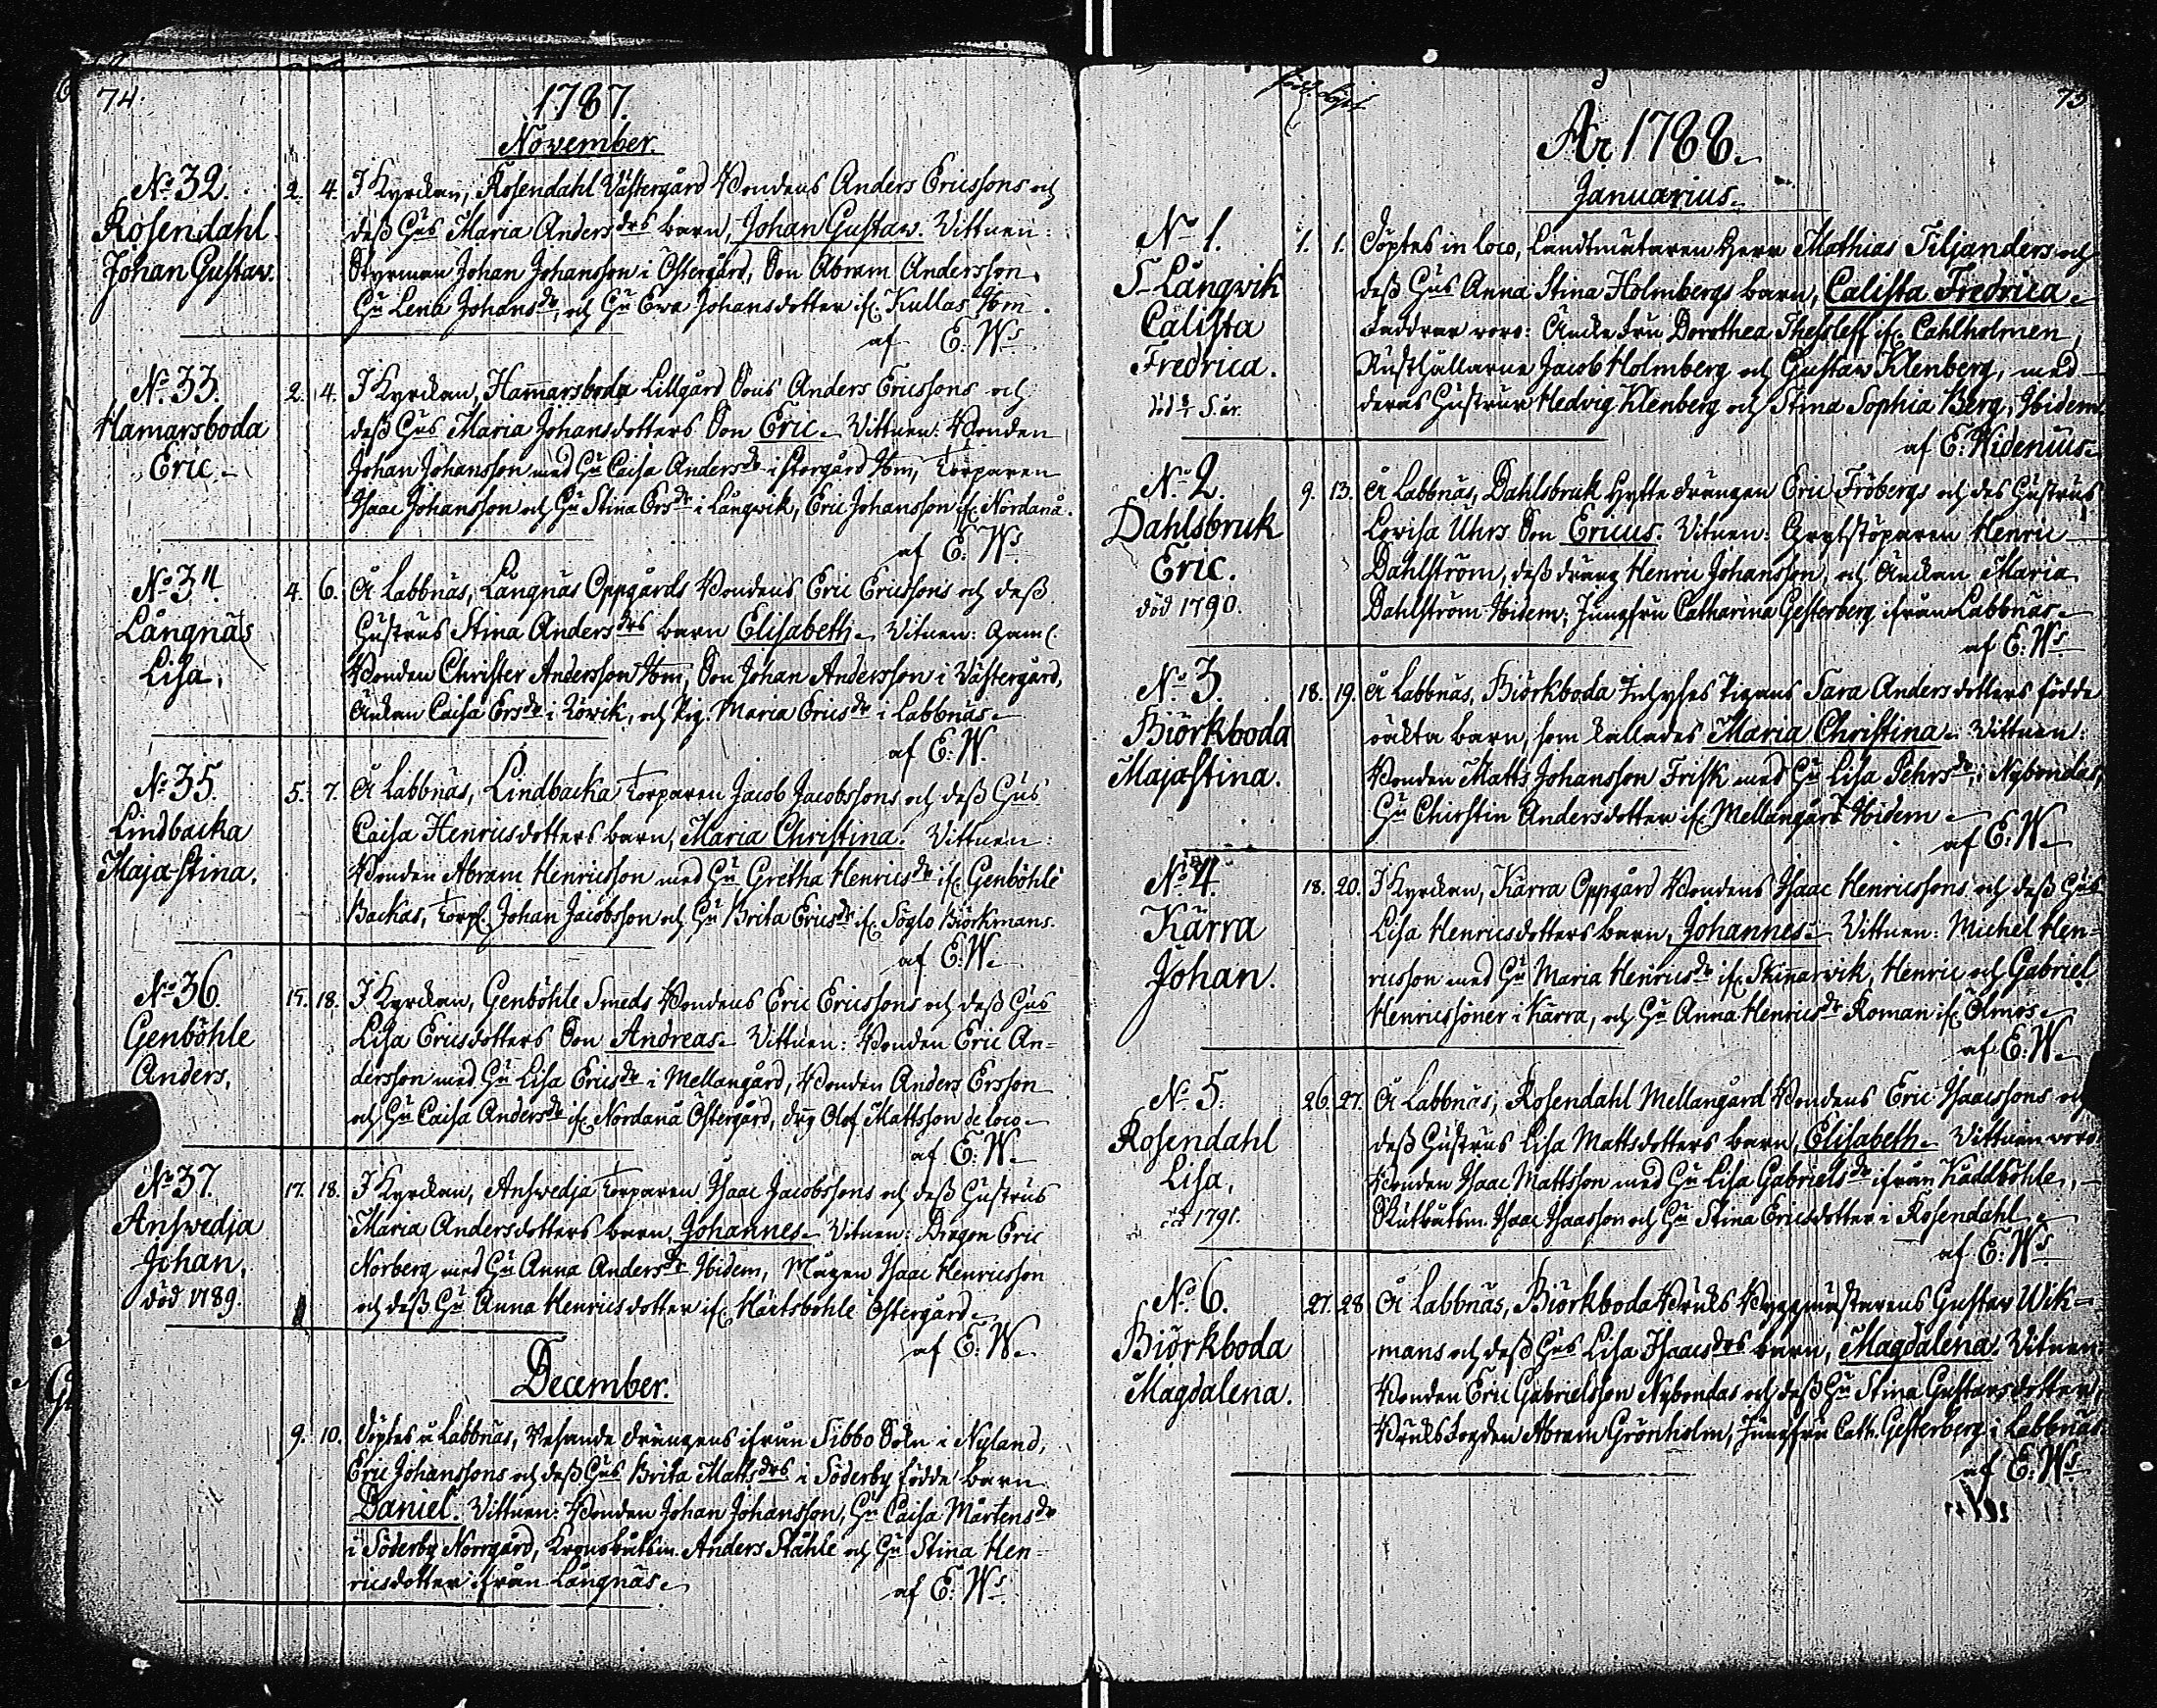 74.
1787.
November.
No 32.
Rosendahl
Johan Gustav.
2. 4. I Kyrckan, Rosendahl Västergård Bondens Anders Ericssons och
dess Hus Maria Andersdrs barn, Johan Gustaw. Vittnen:
Styrman Johan Johansson i Östergård, Son Abram Andersson,
Hu Lena Johansdr, och Hu Ewa Johansdotter if. Kullas Ibm.
af E: Ws
No 33.
Hamarsboda
Eric.
2. 4. I Kyrckan, Hamarsboda Lillgård Sons Anders Ericssons och
dess Hus Maria Johansdotters Son Eric. Vittnen: Bonden
Johan Johansson med Hu Caisa Andersdr i Storgård Ibm, Torparen
Isaac Johansson och Hu Stina Ersdr i Långwik, Eric Johansson if. Nordanå.
af E: Ws
No 34.
Långnäs
Lisa.
4. 6. Å Labbnäs, Långnäs Oppgårds Bondens Eric Ericssons och dess
Hustrus Stina Andersdrs barn Elisabeth. Vitnen: Gaml.
Bonden Christer Andersson Ibm, Son Johan Andersson i Västergård,
Änkan Caisa Ersdr i Löwik, och Pig. Maria Ericsdr i Labbnäs.
af E: W.
No 35.
Lindbacka
Maja-Stina.
5. 7. Å Labbnäs, Lindbacka Torparen Jacob Jacobssons och dess Hus
Caisa Henricsdotters barn, Maria Christina. Vittnen:
Bonden Abram Henricsson med Hu Gretha Henricsdr if. Genböhle
Backas, Torp. Johan Jacobsson och Hu Brita Ericsdr if. Söglo Biörkmans.
af E: W.
No 36.
Genböhle
Anders.
15. 18. I Kyrckan, Genböhle Smeds Bondens Eric Ericssons och dess Hus
Lisa Ericsdotters Son Andreas. Vittnen: Bonden Eric An=
dersson med Hu Lisa Ericsdr i Mellangård, Bonden Anders Ersson
och Hu Caisa Andersdr if. Nordanå Östergård, drg Olof Mattsson de loco
af E: W.
No 37.
Answedja
Johan.
död 1789.
17. 18. I Kyrckan, Answedja Torparen Isaac Jacobssons och dess Hustrus
Maria Andersdotters barn, Johannes. Vitnen: Dragon Eric
Norberg med Hu Anna Andersdr Ibidem, Mågen Isaac Henricsson
och dess Hu Anna Henricsdotter if. Härtsböhle Östergård.
af E: W.
December.
9. 10. Döptes å Labbnäs, Resande drängens ifrån Sibbo Sokn i Nyland,
Eric Johanssons och dess Hus Brita Mattsdrs i Söderby födde barn
Daniel. Vittnen: Bonden Johan Johansson, Hu Caisa Mårtensdr
i Söderby Norrgård, Kronobåtsm. Anders Ståhle och Hu Stina Hen-
ricsdotter ifrån Långnäs.
af E: Ws
75
född. döpt
År 1788.
Januarius.
No 1.
S-Långwik
Calista
Fredrica.
1. 1. Döptes in loco, Landtmätaren Herr Mathias Tiljanders och
dess Hus Anna Stina Holmbergs barn, Calista Fredrica.
Faddrar voro: Änke Fru Dorothea Thesleff if. Cahlholmen,
Rusthållarne Jacob Holmberg och Gustaw Klenberg, med
deras Hustrur Hedvig Klenberg och Stina Sophia Berg, Ibidem
af E: Widenius.
No 2.
Dahlsbruk
Eric.
död 1790.
9. 13. Å Labbnäs, Dahlsbruk Hytte drängen Eric Fröbergs och des Hustrus
Lovisa Uhrs Son Ericus. Vitnen: Grytstöparen Henric
Dahlström, dess dräng Henric Johansson, och Änckan Maria
Dahlström Ibidem; Jungfru Catharina Gesterberg ifrån Labbnäs.
af E: Ws
No 3.
Biörkboda
Maja-Stina.
18. 19. Å Labbnäs, Biörkboda Inhyses Pigans Sara Andersdotters födde
oäkta barn, som kallades Maria Christina. Vittnen:
Bonden Matts Johansson Frisk med Hu Lisa Pehrsdr i Nybondas,
Hu Chirstin Andersdotter if. Mellangård Ibidem
af E: W.
No 4.
Kärra
Johan.
18. 20. I Kyrckan, Kärra Oppgård Bondens Isaac Henricssons och dess Hus
Lisa Henricsdotters barn, Johannes. Vittnen: Michel Hen=
ricsson med Hu Maria Henricsdr if. Skinarwik, Henric och Gabriel
Henricssöner i Kärra, och Hu Anna Henricsdr Roman if. Ölmos.
af E: W.
No 5.
Rosendahl
Lisa.
1791.
26. 27. Å Labbnäs, Rosendahl Mellangård Bondens Eric Isaacssons och
dess Hustrus Lisa Mattsdotters barn, Elisabeth. Vittnen voro:
Bonden Isaac Mattsson med Hu Lisa Gabrielsdr ifrån Kaddböhle,
Isaac Isaacsson och Hu Stina Ericsdotter i Rosendahl.
af E: Ws
No 6.
Biörkboda
Magdalena.
27. 28 Å Labbnäs, Biörkboda Bruks Byggmästarens Gustav Wik=
mans och dess Hus Lisa Isaacsdrs barn, Magdalena. Vitnen:
Bonden Eric Gabrielsson Nybondas och dess Hu Stina Gustavsdotter,
Bruks Fogden Abram Grönholm, Jungfru Cath. Gesterberg i Labbnäs.
af E: Ws